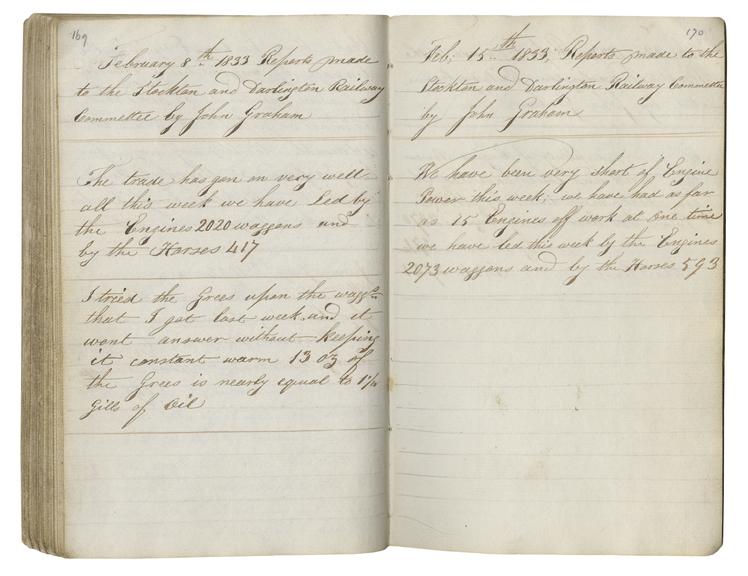 169
February 8th 1833 Reports made
to the Stockton and Darlington Railway
Committee by John Graham
The trade has gon on very well
all this week we have Led by
the Engines 2020 waggons and
by the Horses 417
I tried the Grees upon the waggns
that I got last week and it
wont answer without keeping
it constant warm 13 oz of
the Grees is nearly equal to
Gills of Oil
170
Feb; 15th 1833; Reports made to the
Stockton and Darlington Railway Committee
by John Graham
We have been very short of Engine
Power this week; we have had as far
as 15 Engines off work at one time
we have led this week by the Engines
2073 waggons and by the Horses 593